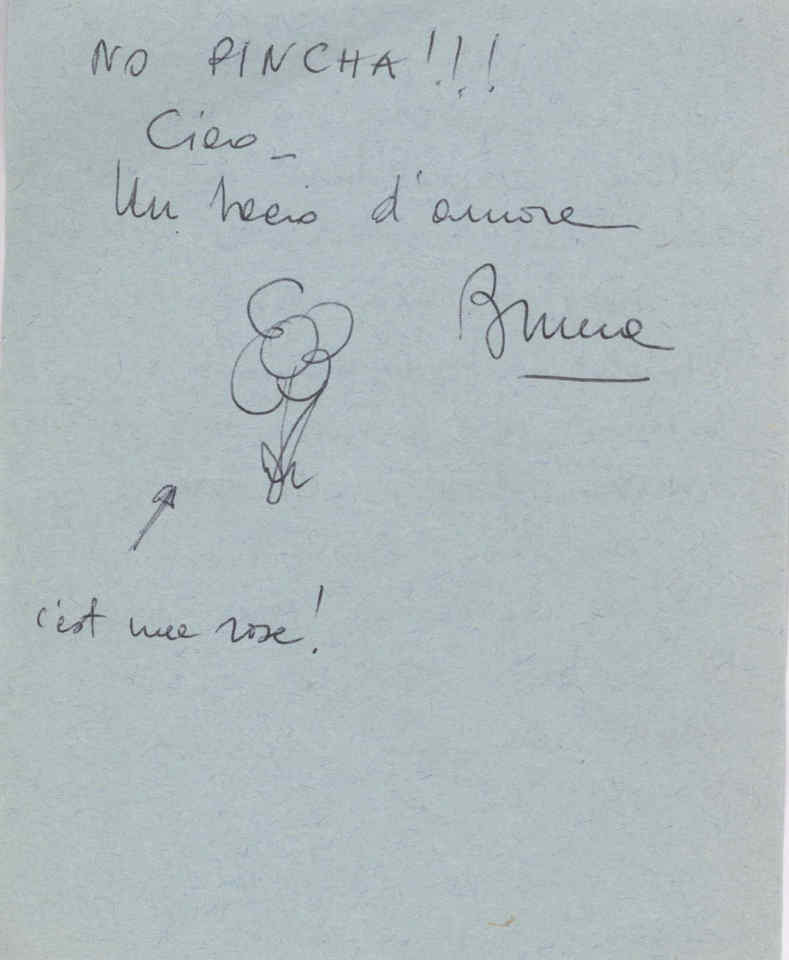 NO PINCHA!!!
Ciao_
Un bacio d'amore
Bruna
c'est une rose!